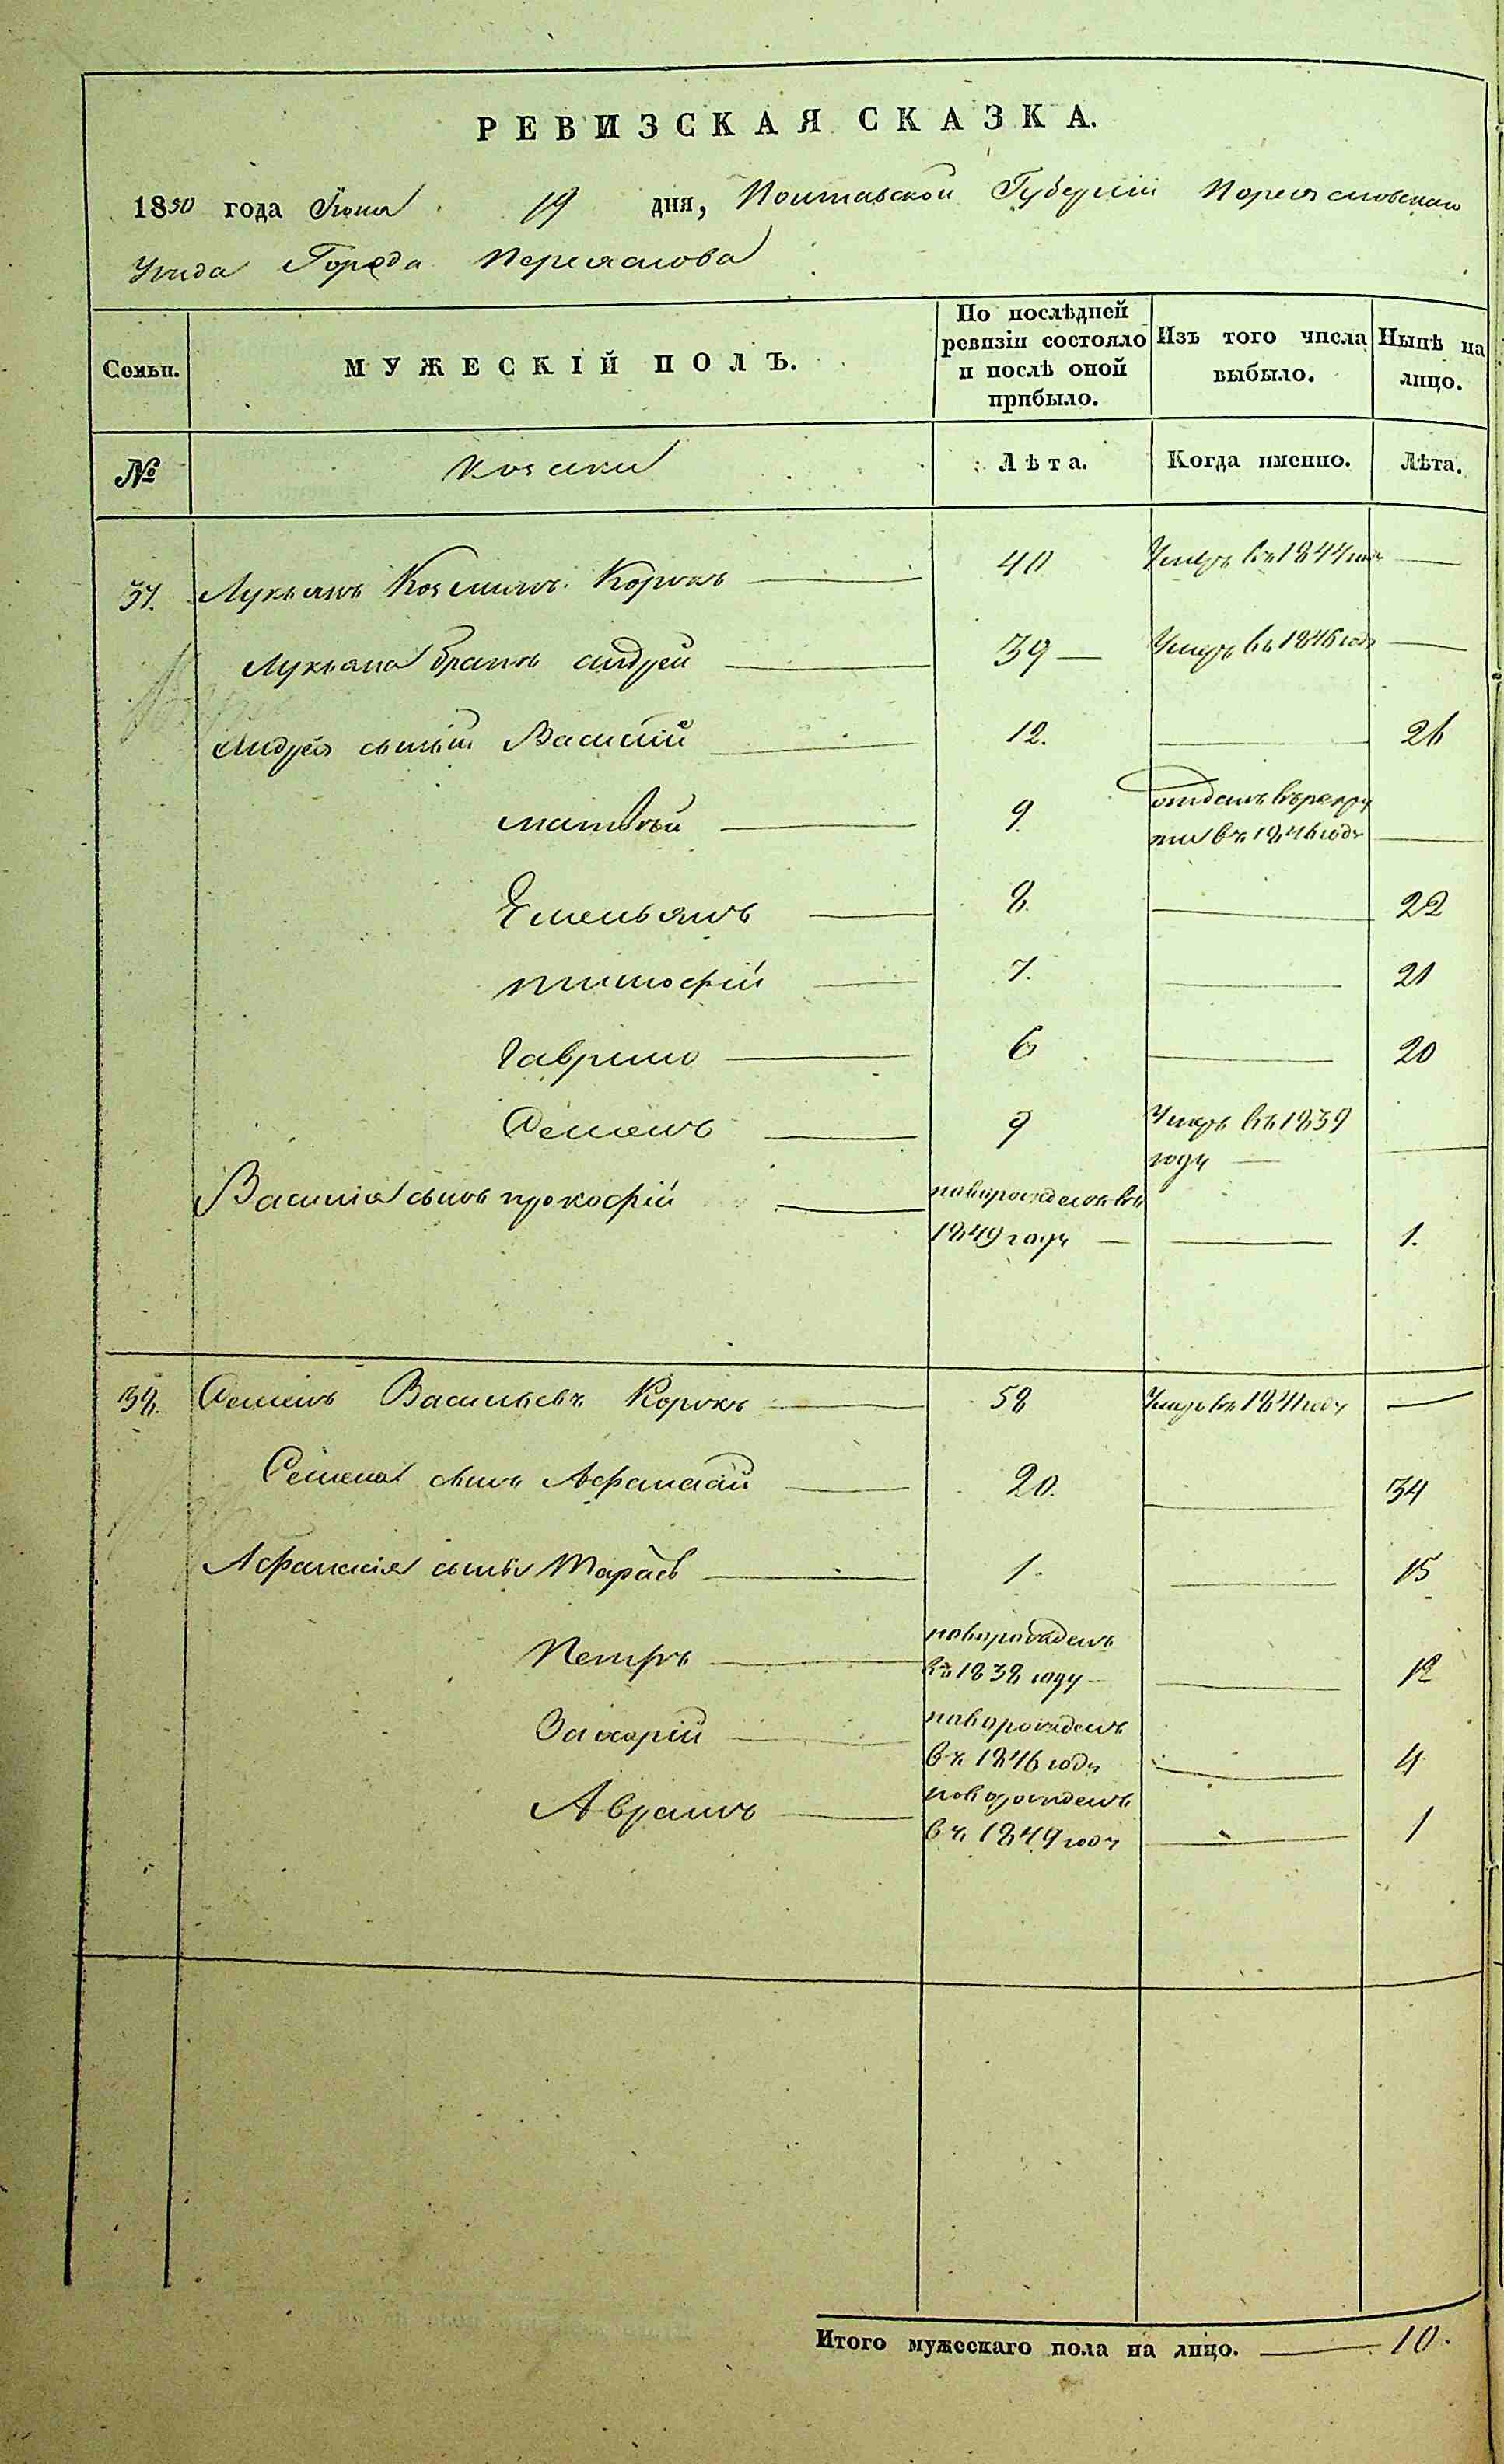 РЕВИЗСКАЯ СКАЗКА.
1850 года Іюня 19 дня, Полтавской Губерніи Переяславскаго
Уезда Города Переяслова
Семьи.
МУЖЕСКІЙ ПОЛЪ.
По послѣдней ревизіи состояло и послѣ оной прибыло.
Изъ того числа выбыло.
Нынѣ на лицо.
№ Козаки Лѣта. Когда именно. Лѣта.
37. Лукьянъ Козминъ Корокъ 40 Умеръ въ 1844 году
Лукьяна братъ андрей 39 Умеръ въ 1846 году
Андрея сыны Василій 12. 26
матвѣй 9. отданъ въ рекру
ты въ 1846 году
Емельянъ 8. 22
тимофій 7. 21
гаврило 6 20
Семенъ 9 Умеръ въ 1839
году
Василія сынъ прокофій новорожденъ въ
1849 году 1.
38. Семенъ Васильевъ Корокъ 58 Умеръ въ 1841 году
Семена сынъ Афанасій 20. 34
Афанасія сыны Тарасъ 1. 15
Петръ новорожденъ
въ 1838 году 12
Захарій новорожденъ
въ 1846 году 4
Аврамъ новорожденъ
въ 1849 году 1
Итого мужескаго пола на лицо. 10.